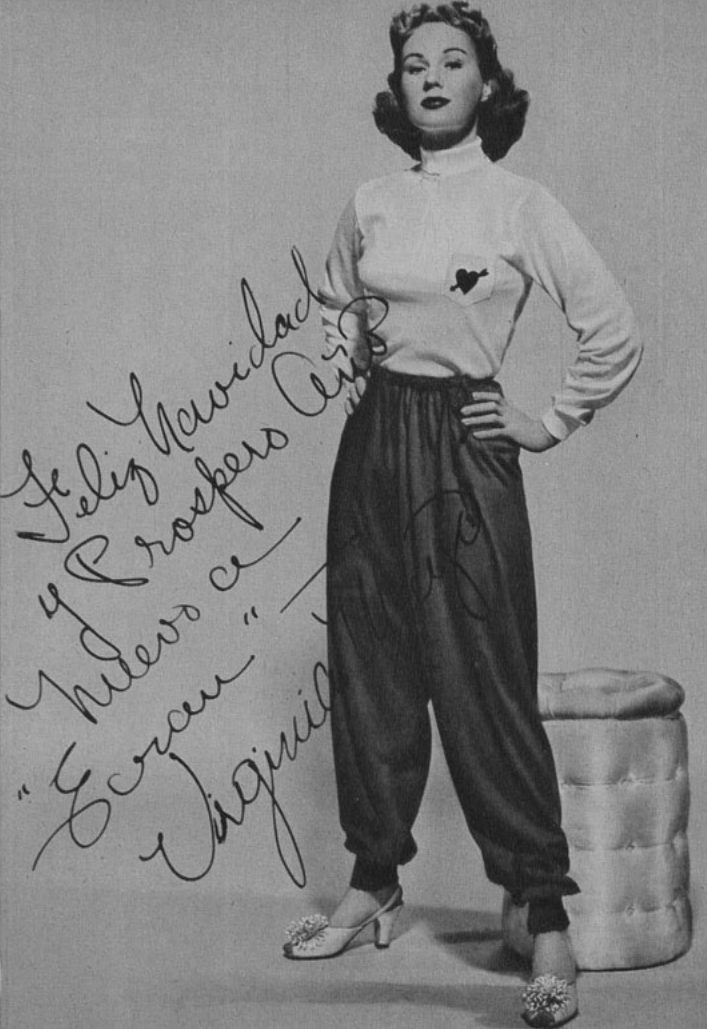 Feliz Navidad
y Prospero año
nuevo a
"Ecran" —
Virginia Mayo